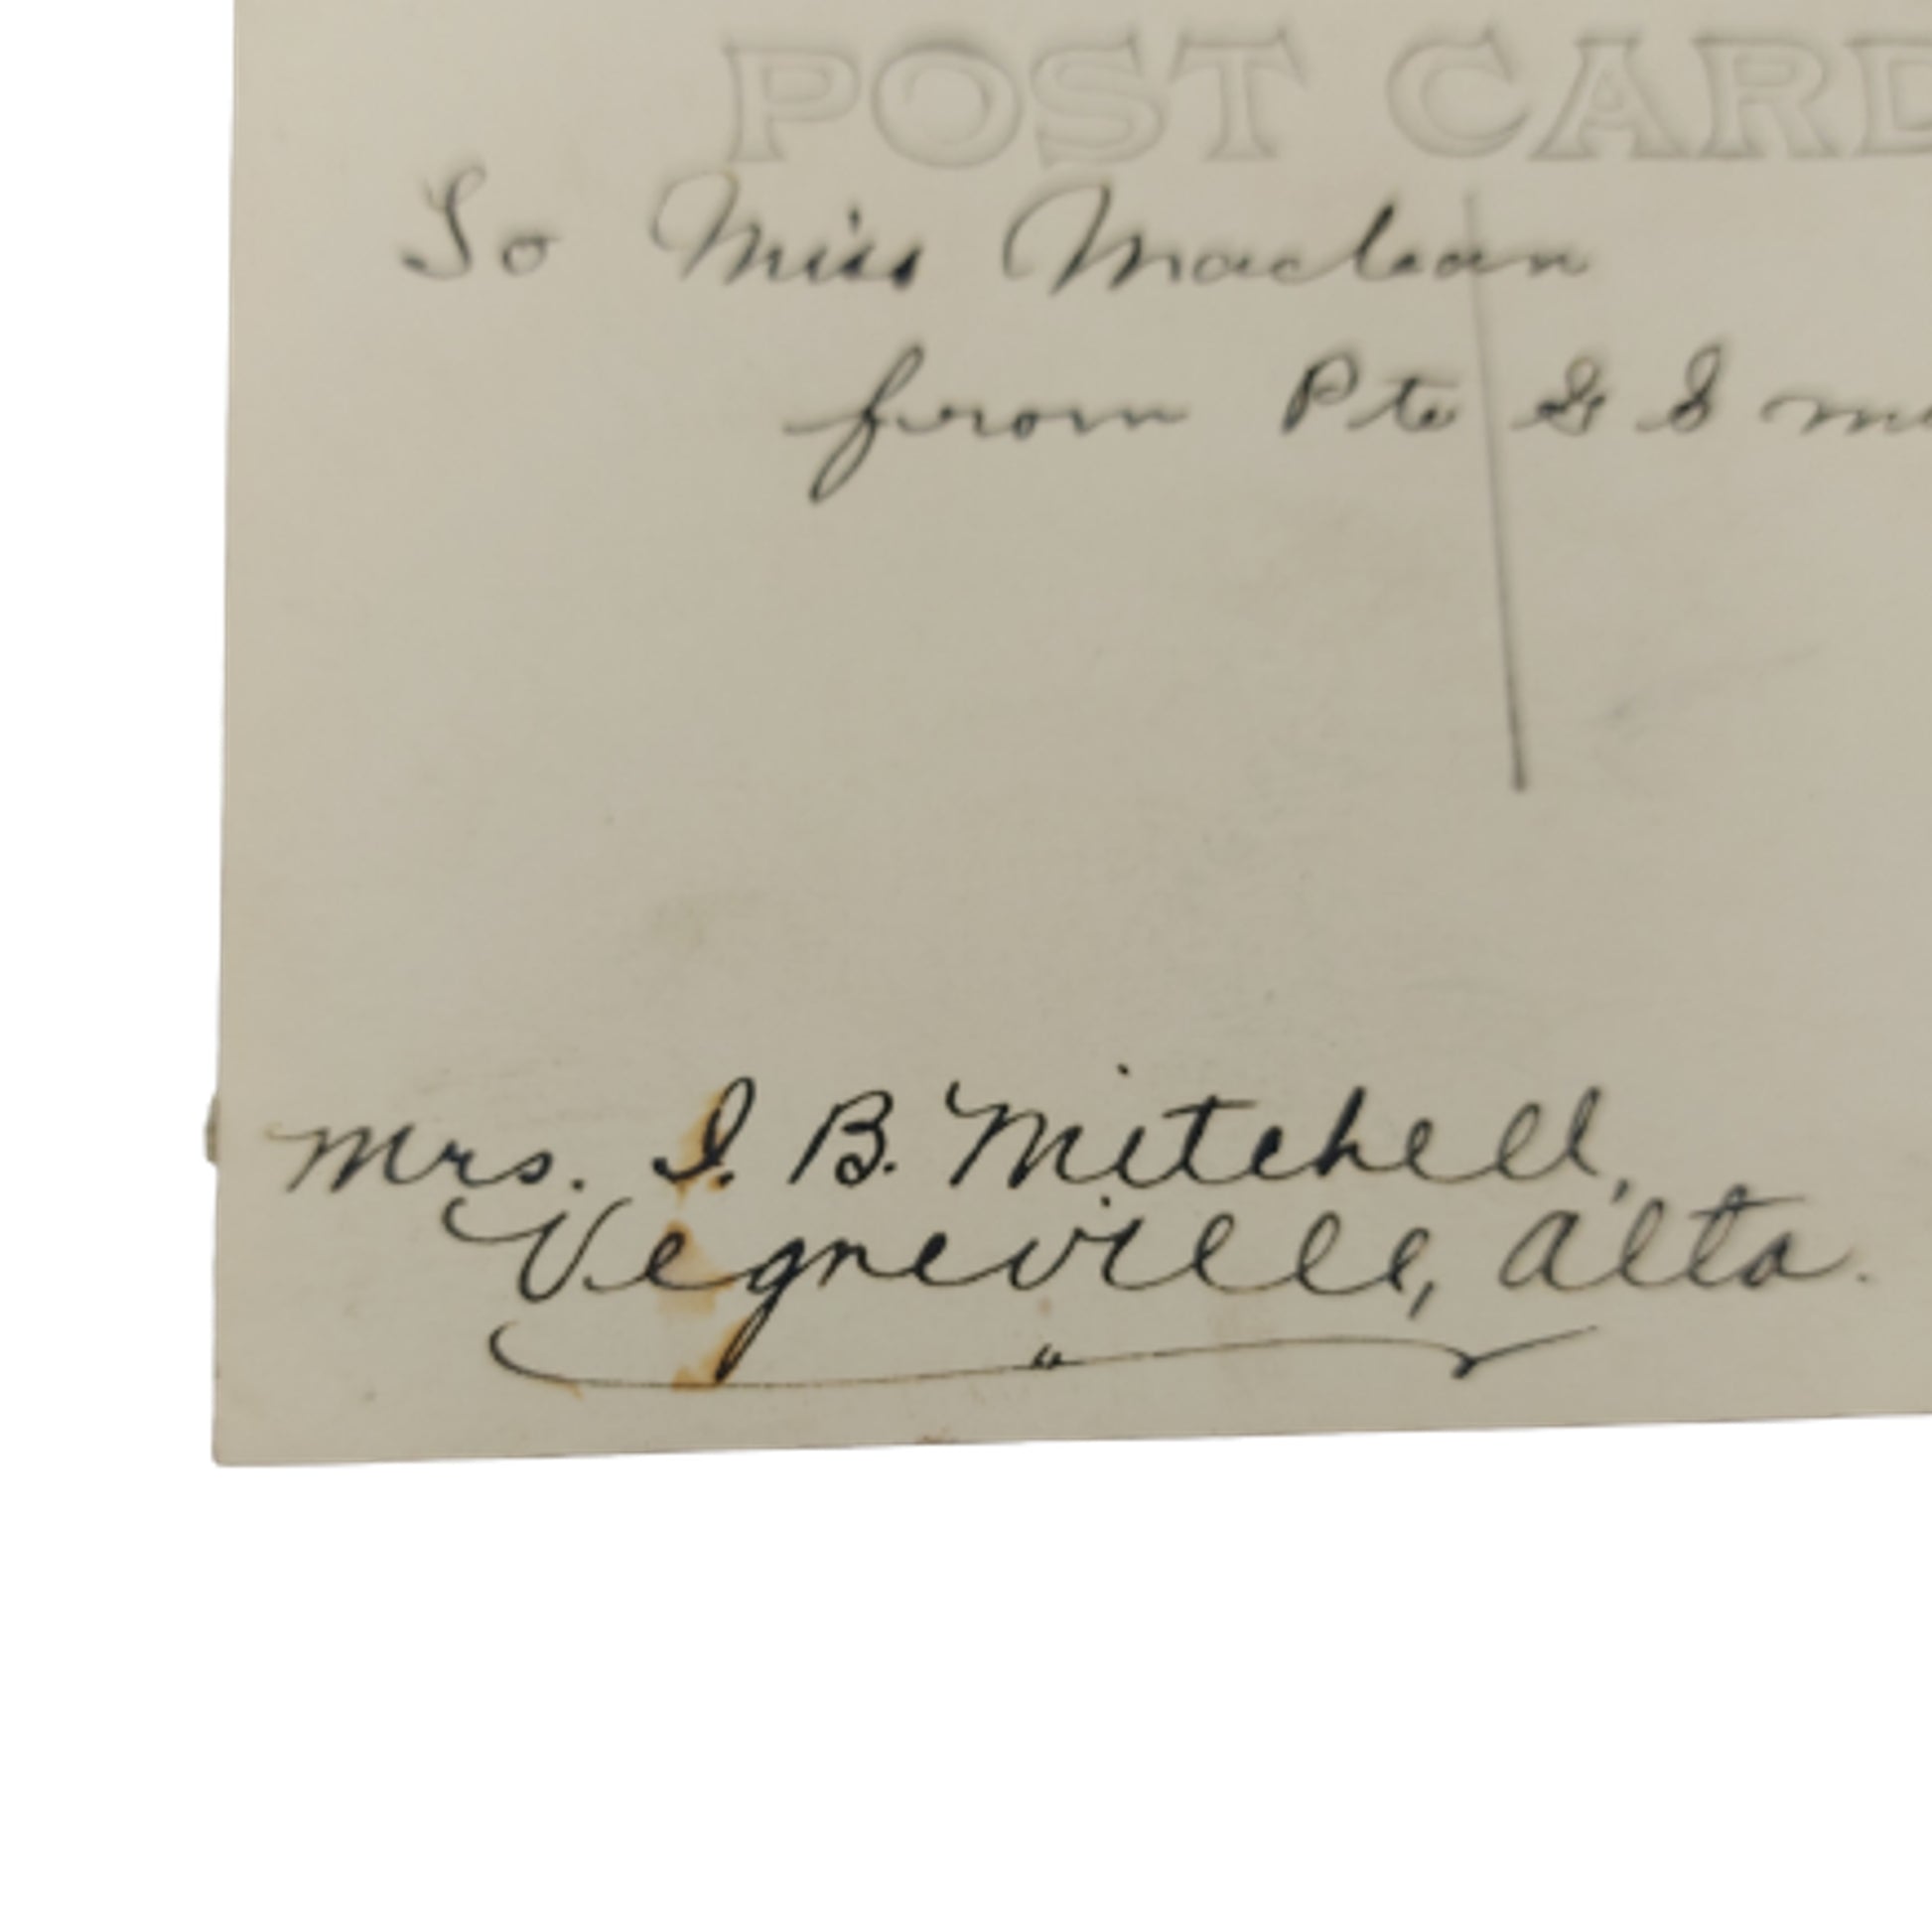 POST CARD
To Miss Maclean
from Pte
Mrs. I. B. Mitchell,
Vegreville, Alta.